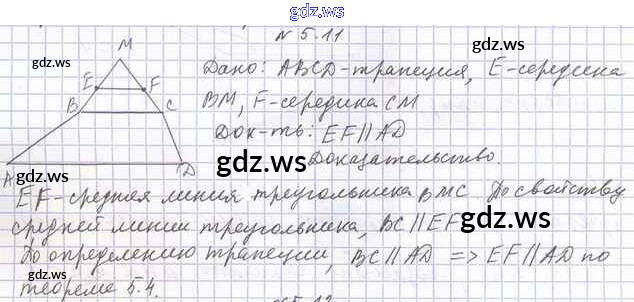 gdz.ws
N 5.11
M
Дано: ABCD-трапеция, E-середина
E F
BM, F-середина CM
B C
Док-ть: EF || AD
gdz.ws gdz.ws
Доказательство.
A D
EF-средняя линия треугольника BMC. По свойству
средней линии треугольника, BC || EF
По определению трапеции, BC || AD => EF || AD по
gdz.ws gdz.ws
теореме 5.4.